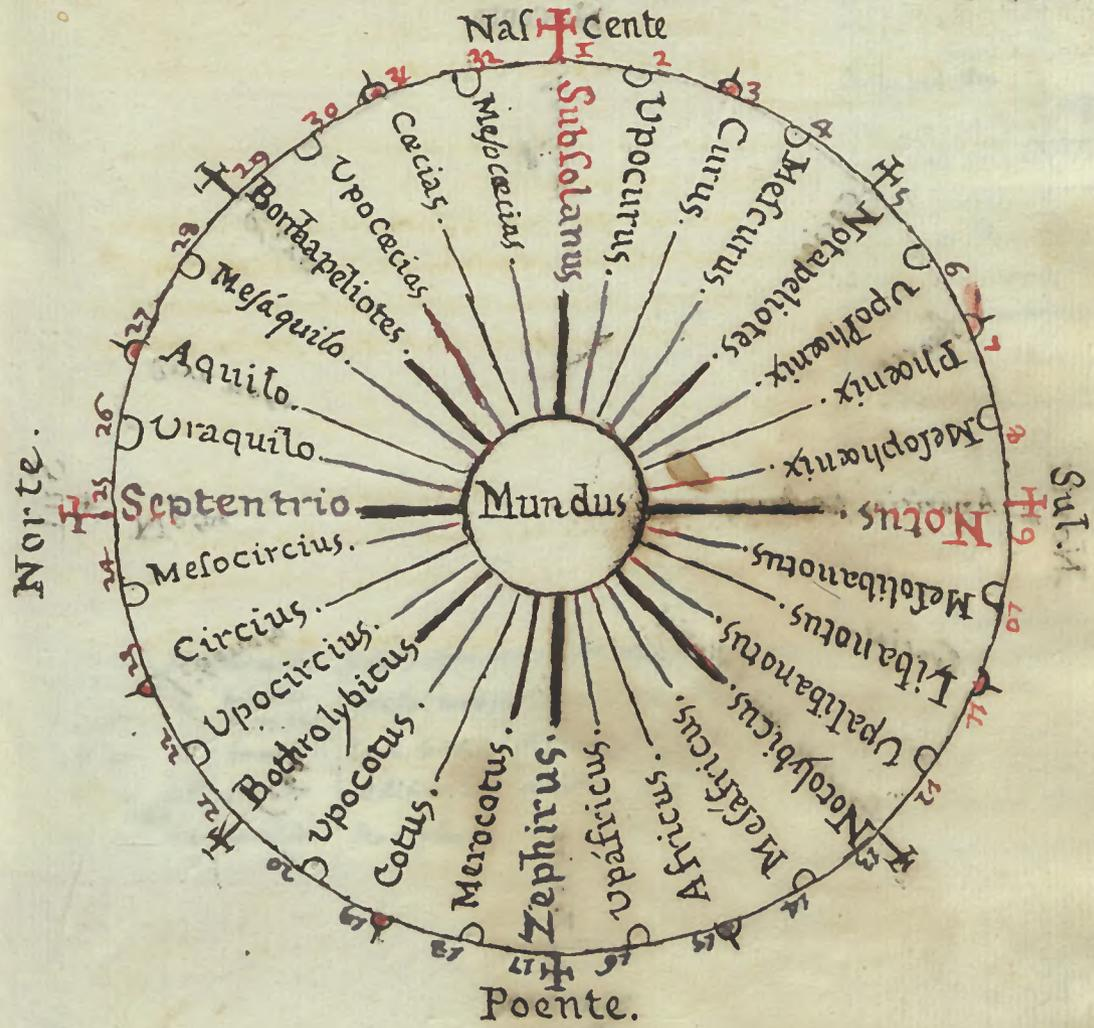 Naſ cente
1 Subſolanus
2 Upocurus.
3 Curus.
4 Meſcurus.
5 Notapeliotes.
6 UpoPhœnix.
7 Phœnix.
8 Meſophœnix.
9 Notus.
Sul.
10 Meſolibanotus.
11 Libanotus.
12 Upalibanotus.
13 Notolybicus.
14 Meſáfricus.
15 Africus.
16 Upáfricus.
17 Zephirus.
Poente.
18 Merocotus.
19 Cotus.
20 Upocotus.
21 Bothrolybicus
22 Upocircius.
23 Circius.
24 Meſocircius.
25 Septentrio
Norte.
26 Uraquilo.
27 Aquilo.
28 Meſáquilo.
29 apeliotes.
30 Upocœcias
31 Cœcias.
32 Meſocœcias.
Mundus